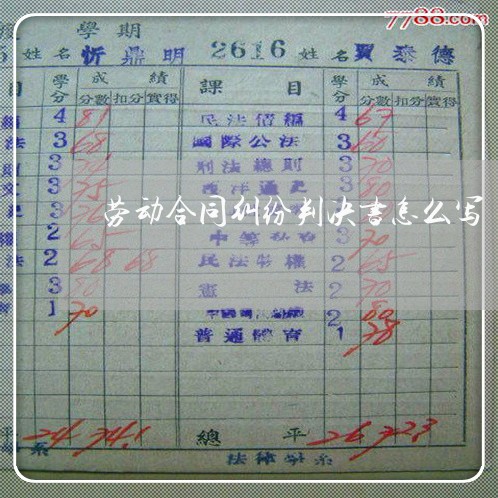 7788.com
學期
姓名 忻鼎明 2616 姓名 賈泰德
目 學分 成績 課目 學分 成績
分數 扣分 實得 分數 扣分 實得
4 81 民法債編 4 67
法 3 68 國際公法 3 60
3 刑法總則 3 70
3 75 西洋通史 3 80
劳动合同纠纷判决书怎么写
2 65 3 70
法 2 68 68 民法物權 2 65
3 80 憲法 2 70
1 70 2 80
普通體育 1 78
平 24 74.1 總平 26 72.3
系 法律學系